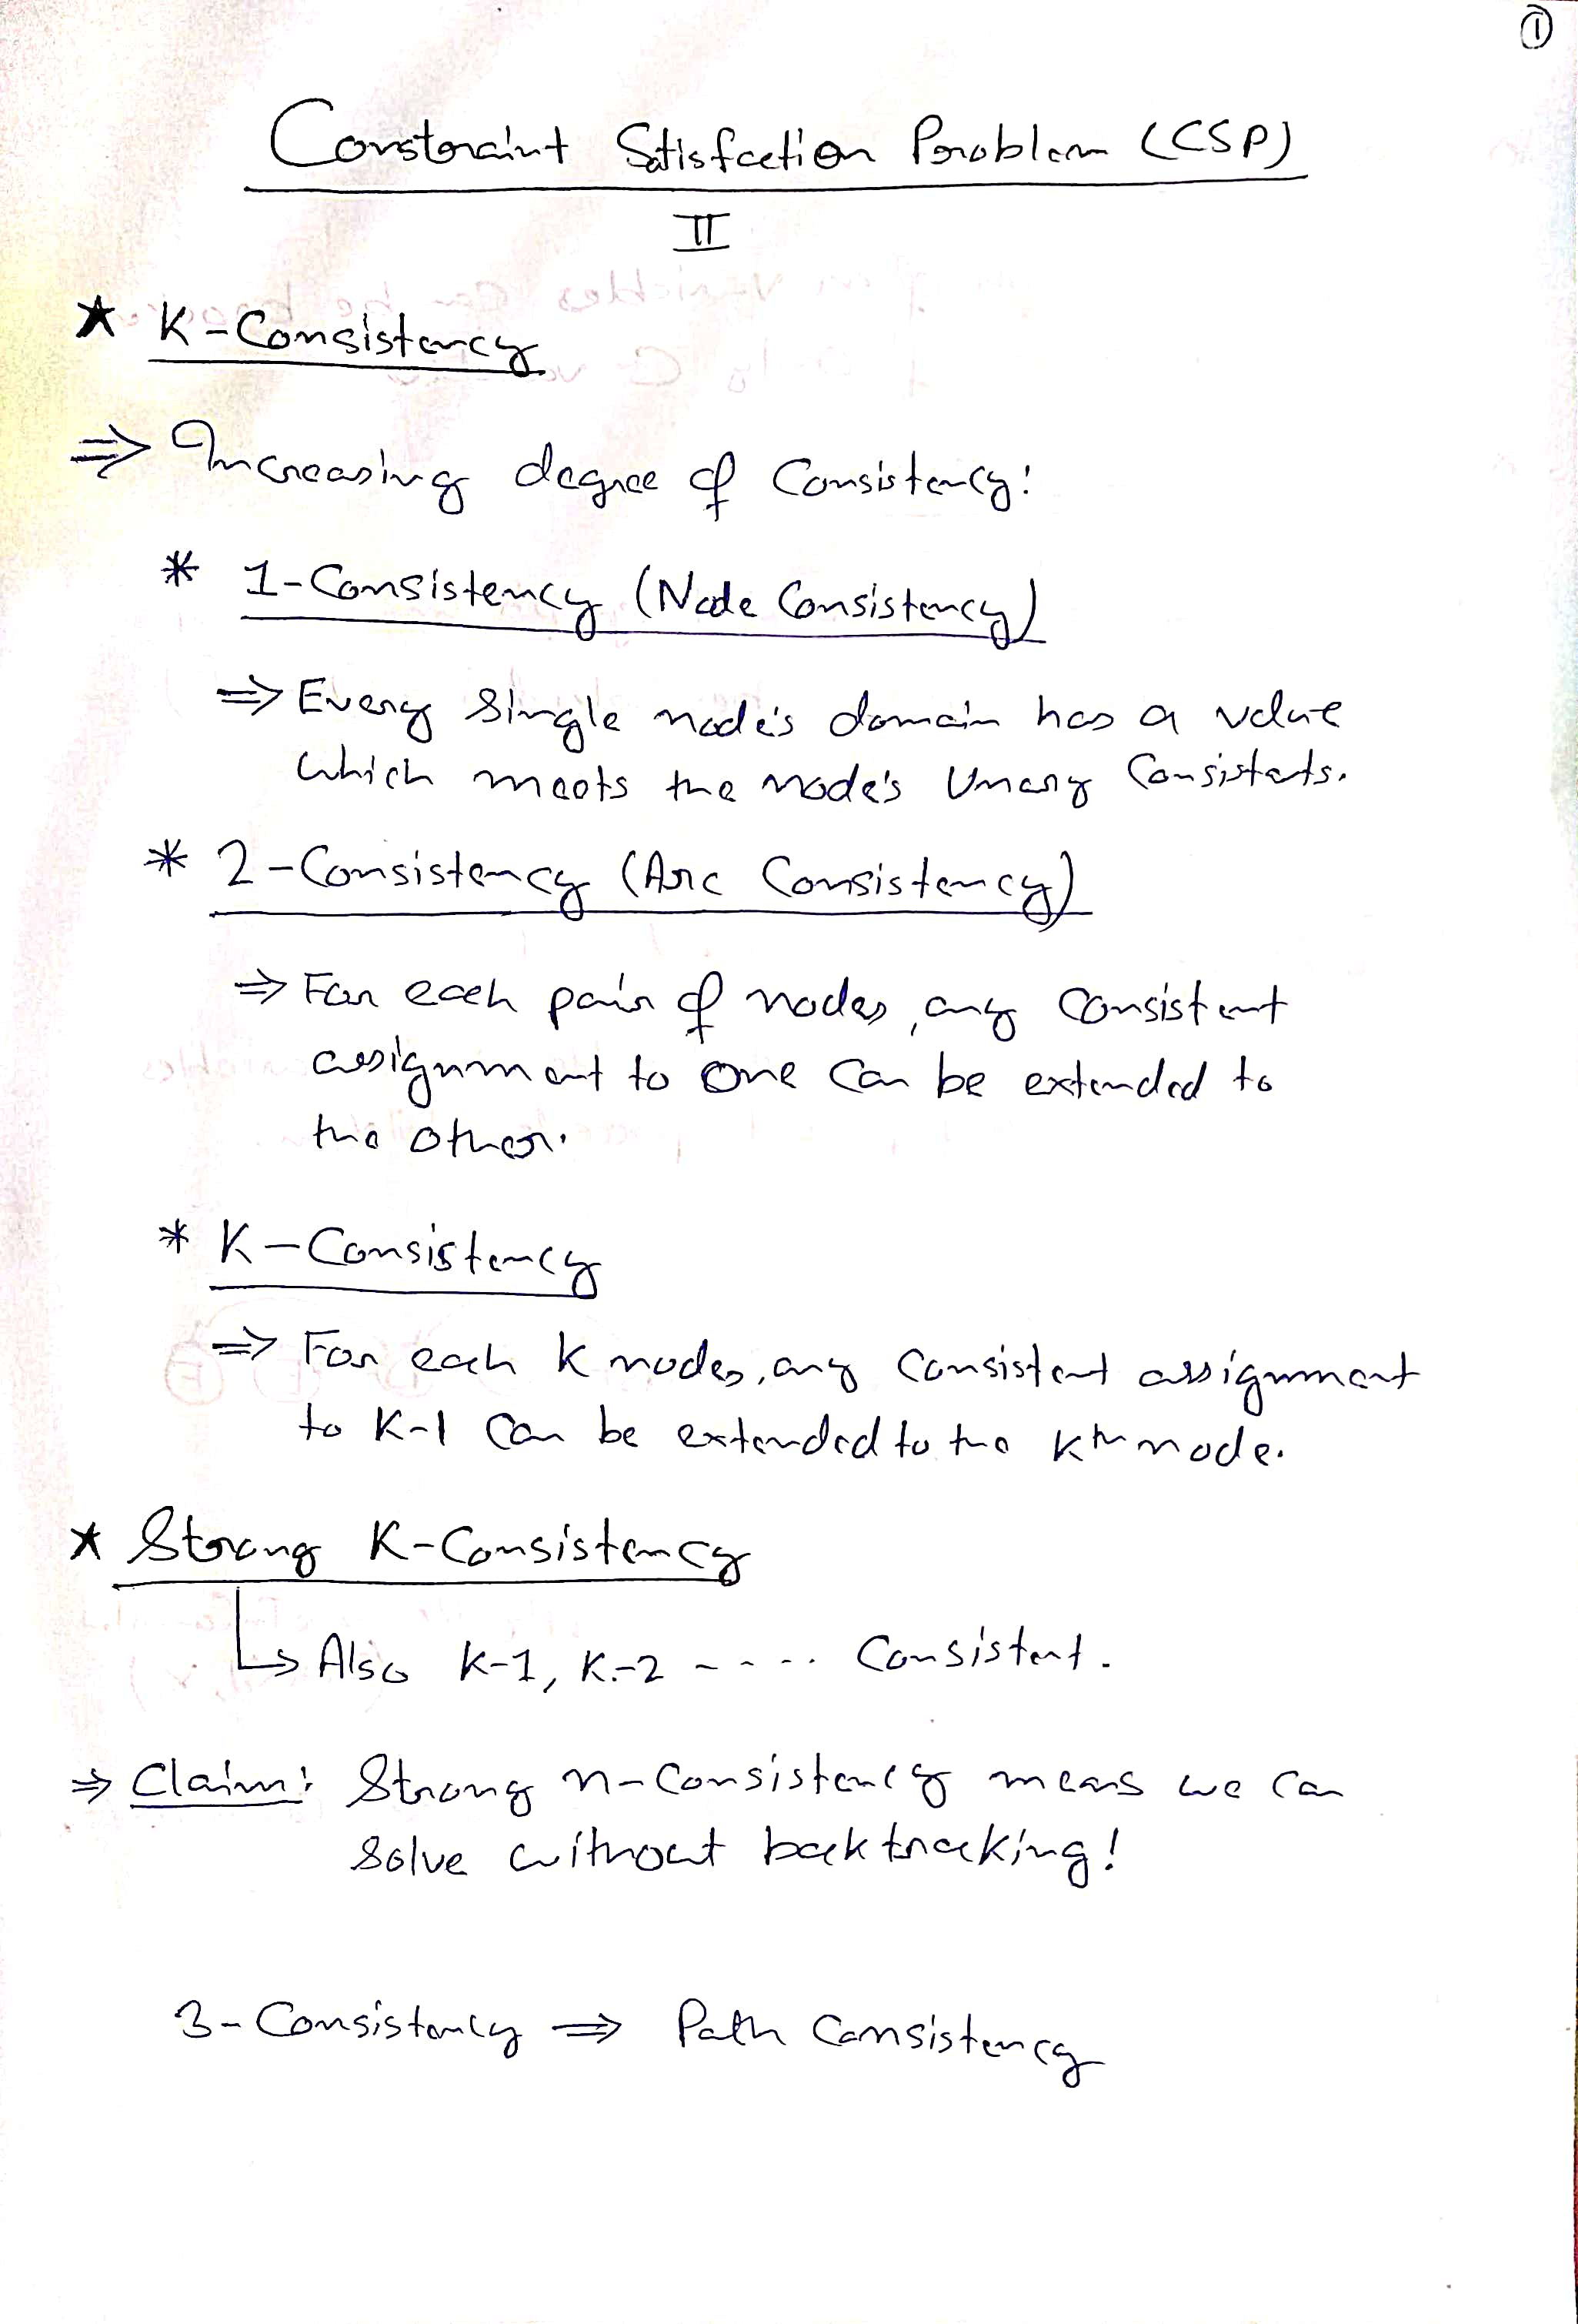 ①
Constraint Satisfaction Problem (CSP)
II
★ K-Consistency
⇒ Increasing degree of Consistency:
* 1-Consistency (Node Consistency)
⇒ Every Single node's domain has a value
which meets the node's Unary Consistents.
* 2-Consistency (Arc Consistency)
⇒ For each pair of nodes, any Consistent
assignment to one can be extended to
the other.
* K-Consistency
⇒ For each K nodes, any Consistent assignment
to K-1 can be extended to the Kth node.
★ Strong K-Consistency
↳ Also K-1, K-2 ---- Consistent.
⇒ Claim: Strong n-Consistency means we can
Solve without backtracking!
3-Consistency ⇒ Path Consistency